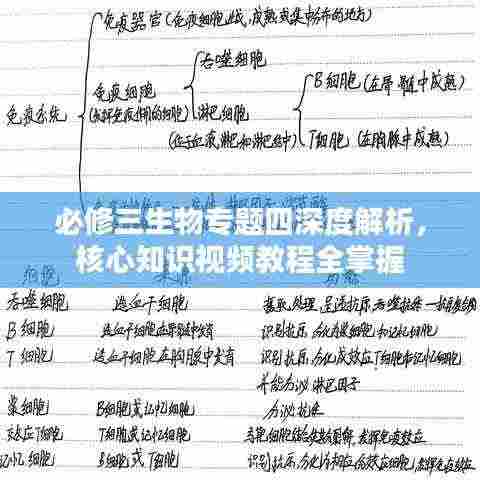 免疫器官（免疫细胞生成，成熟或集中分布的地方）
吞噬细胞
B细胞（在骨髓中成熟）
免疫细胞
（发挥免疫作用的细胞）
淋巴细胞
免疫系统
（位于血液、淋巴和淋巴结中）
T细胞（在胸腺中成熟）
必修三生物专题四深度解析，
核心知识视频教程全掌握
吞噬细胞 造血干细胞 摄取、处理、呈递抗原，吞噬抗体
B细胞 造血干细胞在骨髓中发育 识别抗原，分化为浆细胞和记忆细胞
T细胞 造血干细胞在胸腺中发育 识别抗原，分化成效应T细胞和记忆细胞
并能分泌淋巴因子
浆细胞 B细胞或记忆细胞 分泌抗体
效应T细胞 T细胞或记忆细胞 发挥免疫效应
记忆细胞 B细胞或T细胞 识别抗原，分化为相应的效应细胞，发挥免疫效应